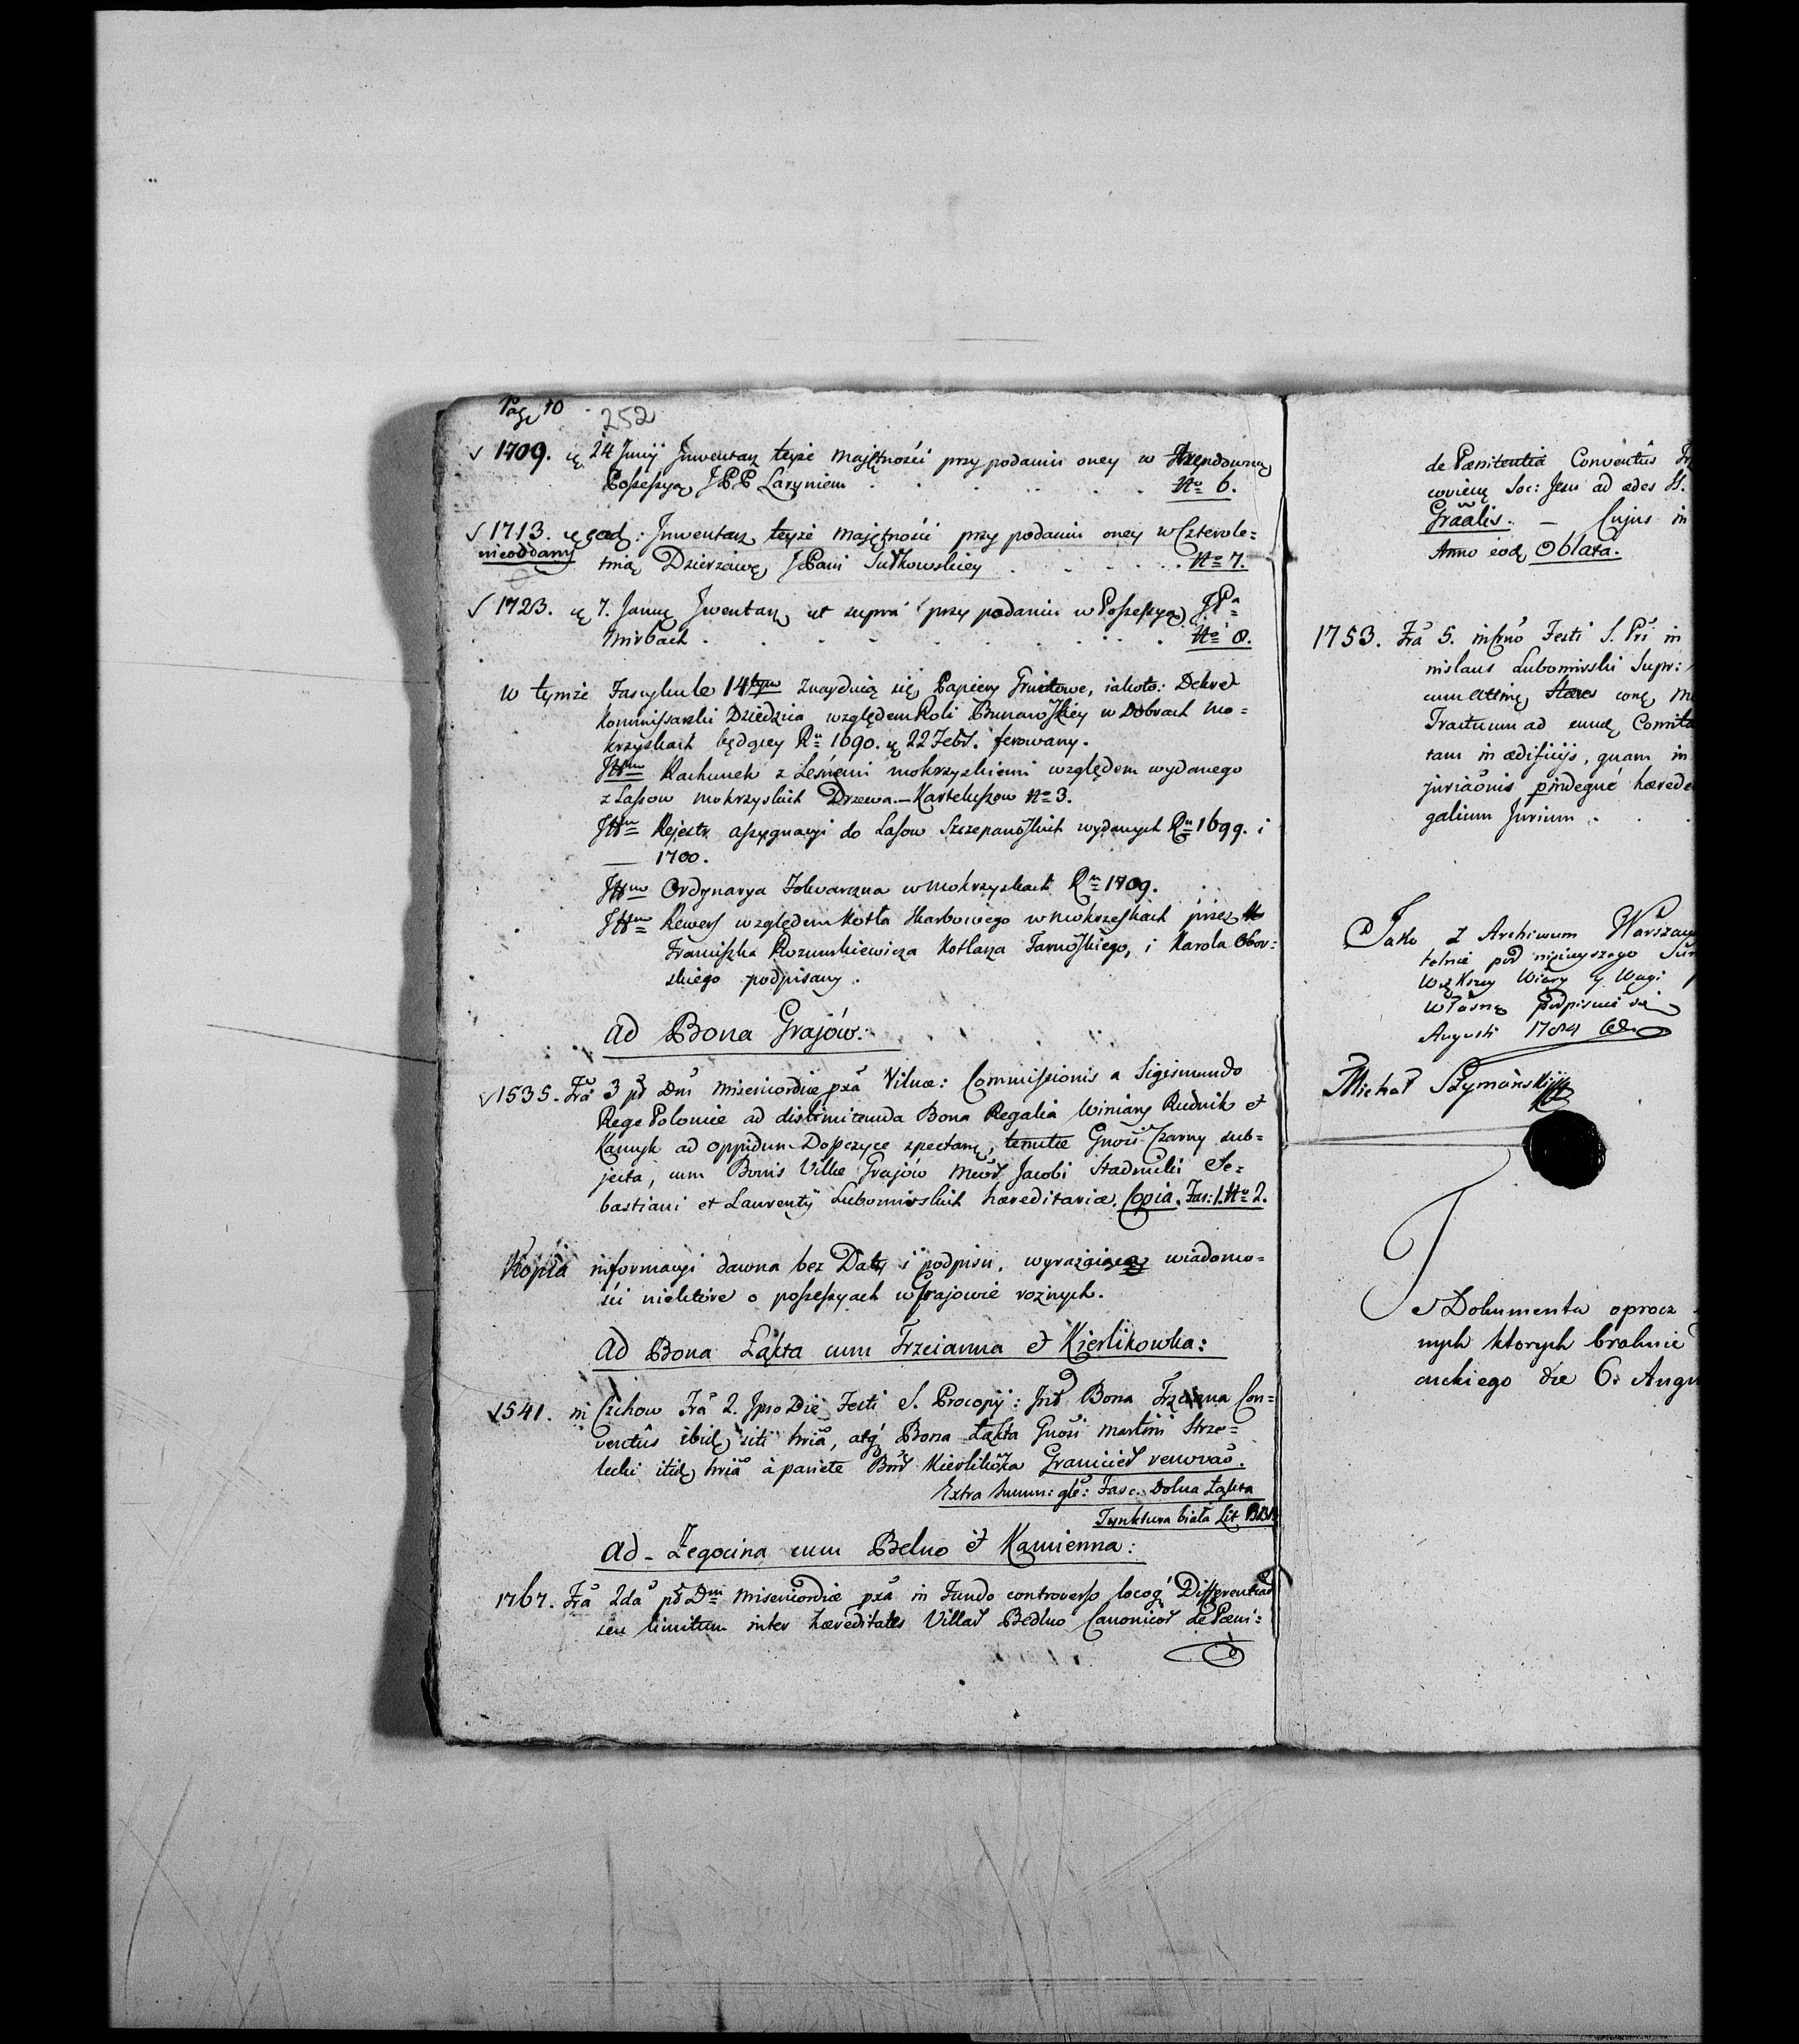 Pag 10
252
√ 1709. 24 Junij Jnwentarz teyże Majętności przy podaniu oney w Arendowną
Possessyą JPP Laryniem . . . . . . No 6.
√ 1713. eod: Jnwentarz teyże Majętności przy podaniu oney w Czterole=
nieoddany tnią Dzierzawę JPani Sułkowskiey . . . . . No 7.
√ 1723. 7. Janu Jwentarz ut supra przy podaniu w Possessyą JPa
Mirbach . . . . . . . No 8.
w tymże Fascykule 14tym znayduią się Papiery Gruntowe, iakoto: Dekret
Kommissarski Dziedzica względem Roli Brunowskiey w Dobrach Mo=
krzyskach będącey Ru 1690. 22 Febr. ferowany.
Jttm Rachunek z Leśnemi mokrzyskiemi względem wydanego
z Lassow mokrzyskich Drzewa. – Karteluszow No 3.
Jttm Rejestr assygnacyi do Lasow Szczepanowskich wydanych Ru 1699. i
— 1700.
Jttm Ordynarya Folwarczna w Mokrzyskach Ru 1709.
Jttm Rewers względem Kotła Skarbowego w Mokrzyskach przez
Franciszka Rozumkiewicza Kotlarza Tarnowskiego, i Karola Obor=
skiego podpisany.
ad Bona Grajów:
√ 1535. Fra 3 pt Dni Misericordiæ pxa Vilnæ: Commissionis a Sigismundo
Rege Poloniæ ad dislimitanda Bona Regalia Winiary Rudnik et
Kamyk ad oppidum Dopczyce spectan, tenutæ Gnosi Czarny sub=
jecta, cum Bonis Villæ Grajów Jacobi Stadnicki Se=
bastiani et Laurentij Lubomirskich hæreditariæ. Copia. Fas: 1. No 2.
Kopia informacyi dawna bez Daty i podpisu, wyrażaiąca wiadomo=
ści niektóre o possessyach w Grajowie roznych.
ad Bona Łąkta cum Trzcianna et Kierlikowka:
√ 1541. in Czchow Fra 2. Jpso Die Festi S. Procopij: Bona Trzciana Con=
ventûs ibid siti hria, atq Bona Łąkta Gnosi Martini Strze=
lecki itid hria à pariete Bnr Kierlikowka Granicier renovao.
Extra Summ: gle: Fasc. Dolna Łąkta
Tynktura biała Lit BBB
ad - Żegocina cum Belno et Kamienna:
1767. Fra 2da pt Dni Misericordiæ pxa in Fundo controverso locoq Differentiar
seu limitum inter hæreditates Villar Bedlno Canonicor de Pœni=
de Pœnitentia Conventûs
coviens Soc: Jesu ad ædes
Graalis. — Cujus in
Anno eod Oblata.
1753. Fra 5. in Festi S. in
nislaus Lubomirski Supr:
cum
Tractuum ad
tam in ædificijs, quam in
hærede
galium Jurium.
Jako z Archiwum Warszaw
telnie pod ninieyszego
większey Wiary y Wagi
Własną Podpisuię się
Augusti 1784
Michał Szymański
Dokumenta oprocz
nych ktorych braknie
ackiego die 6. Augu